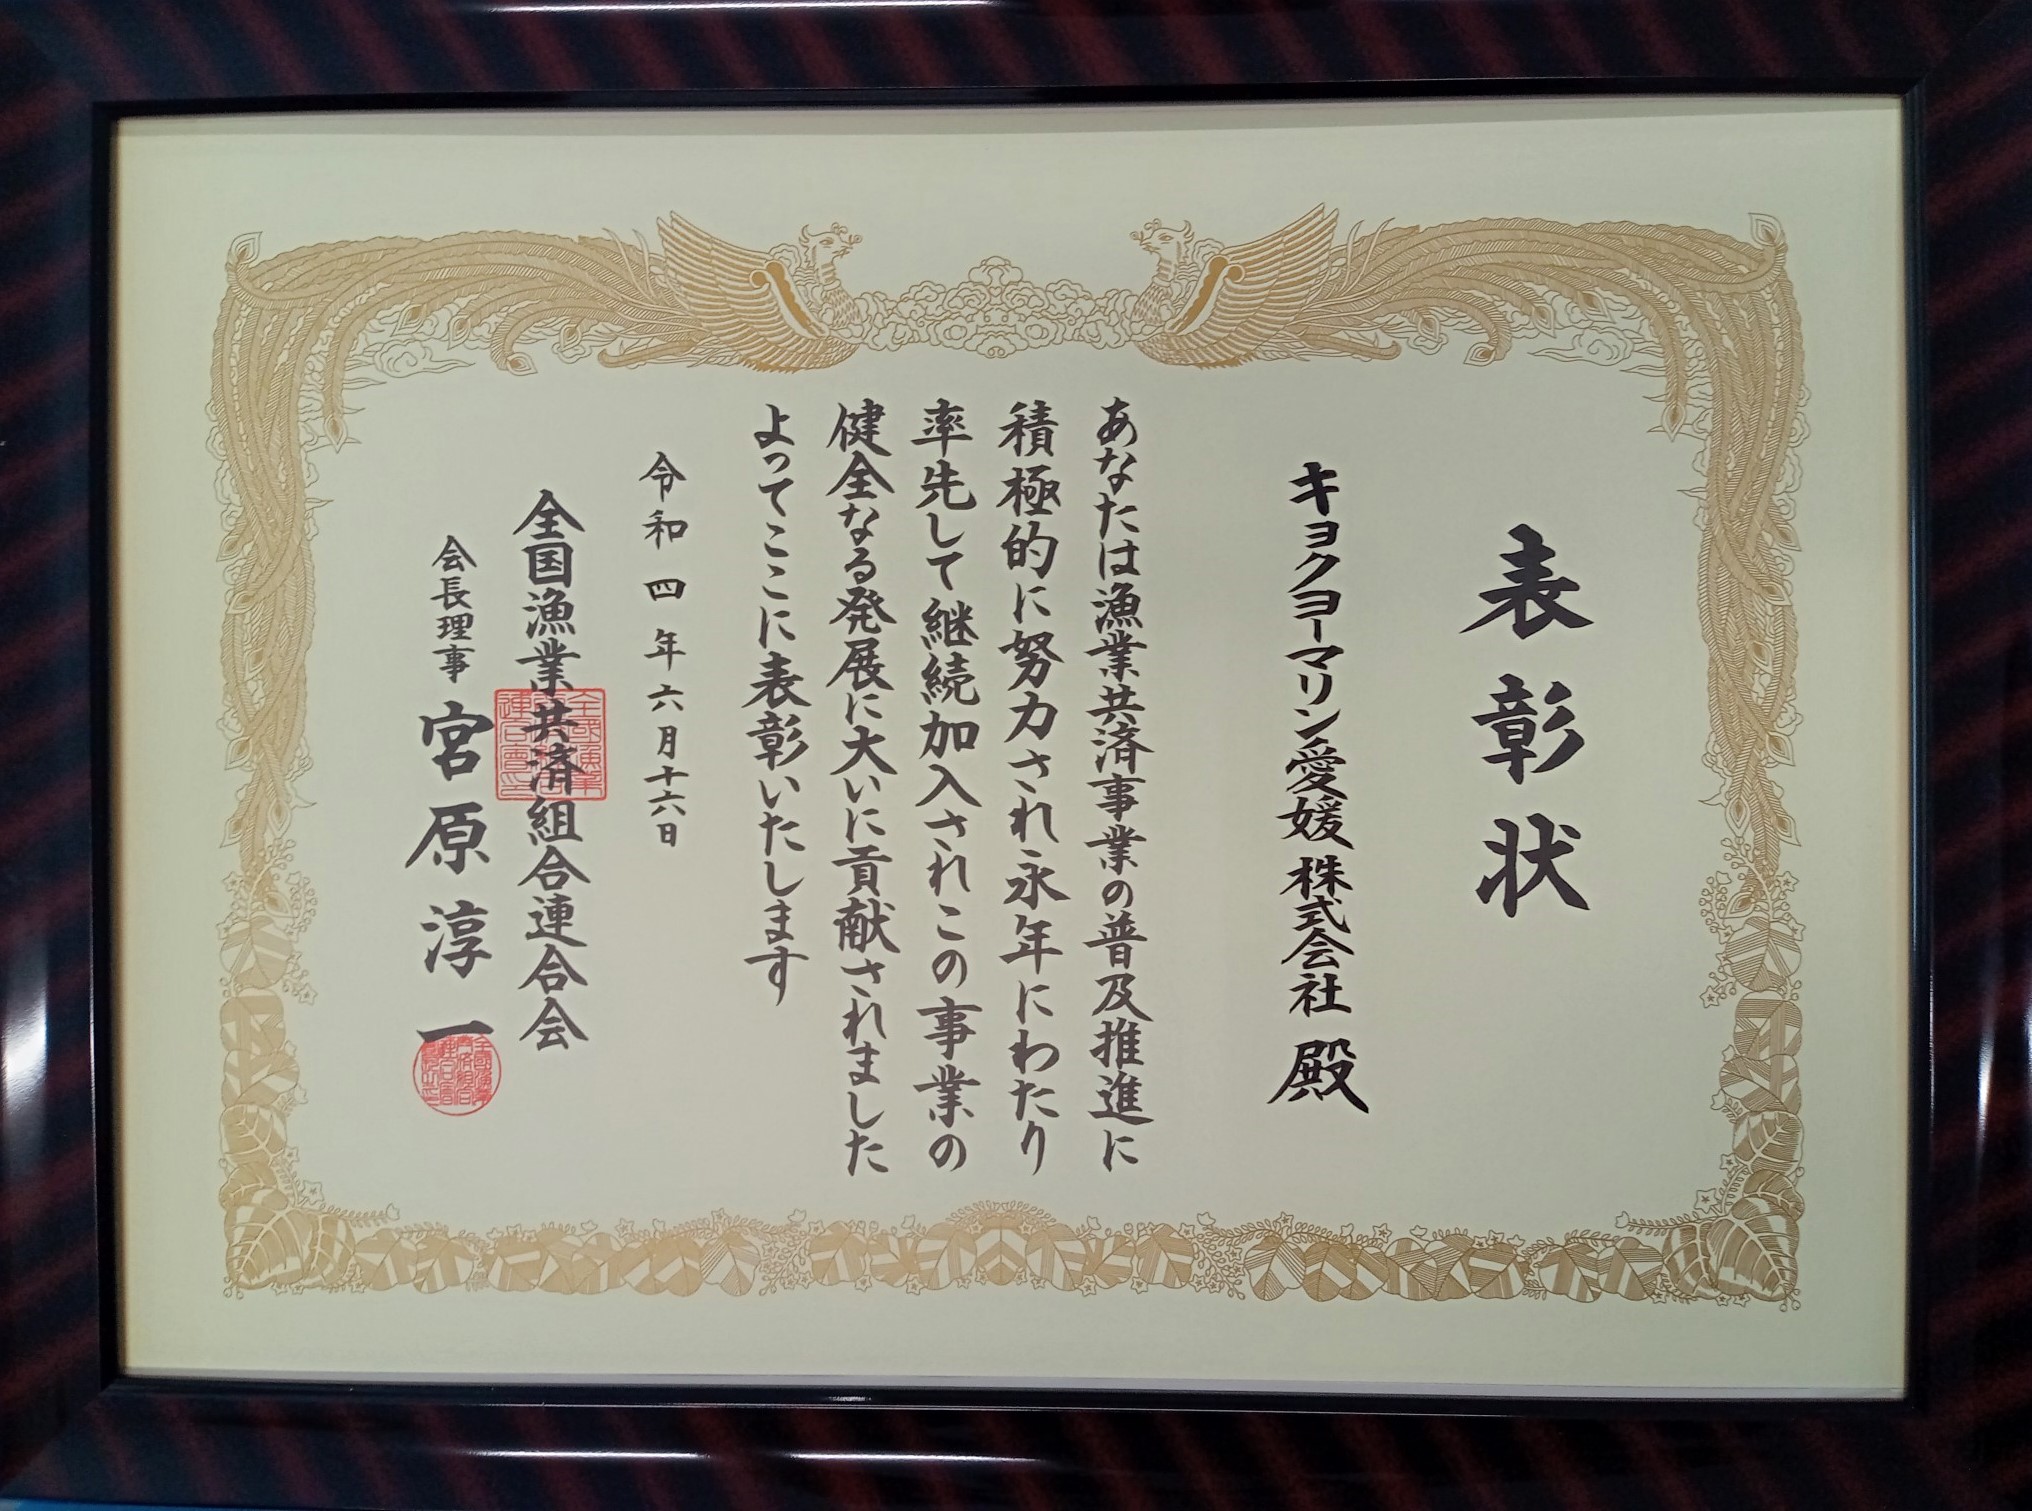 表彰状
キョクヨーマリン愛媛株式会社 殿
あなたは漁業共済事業の普及推進に
積極的に努力され永年にわたり
率先して継続加入されこの事業の
健全なる発展に大いに貢献されました
よってここに表彰いたします
令和四年六月十六日
全国漁業共済組合連合会
会長理事 宮原淳一